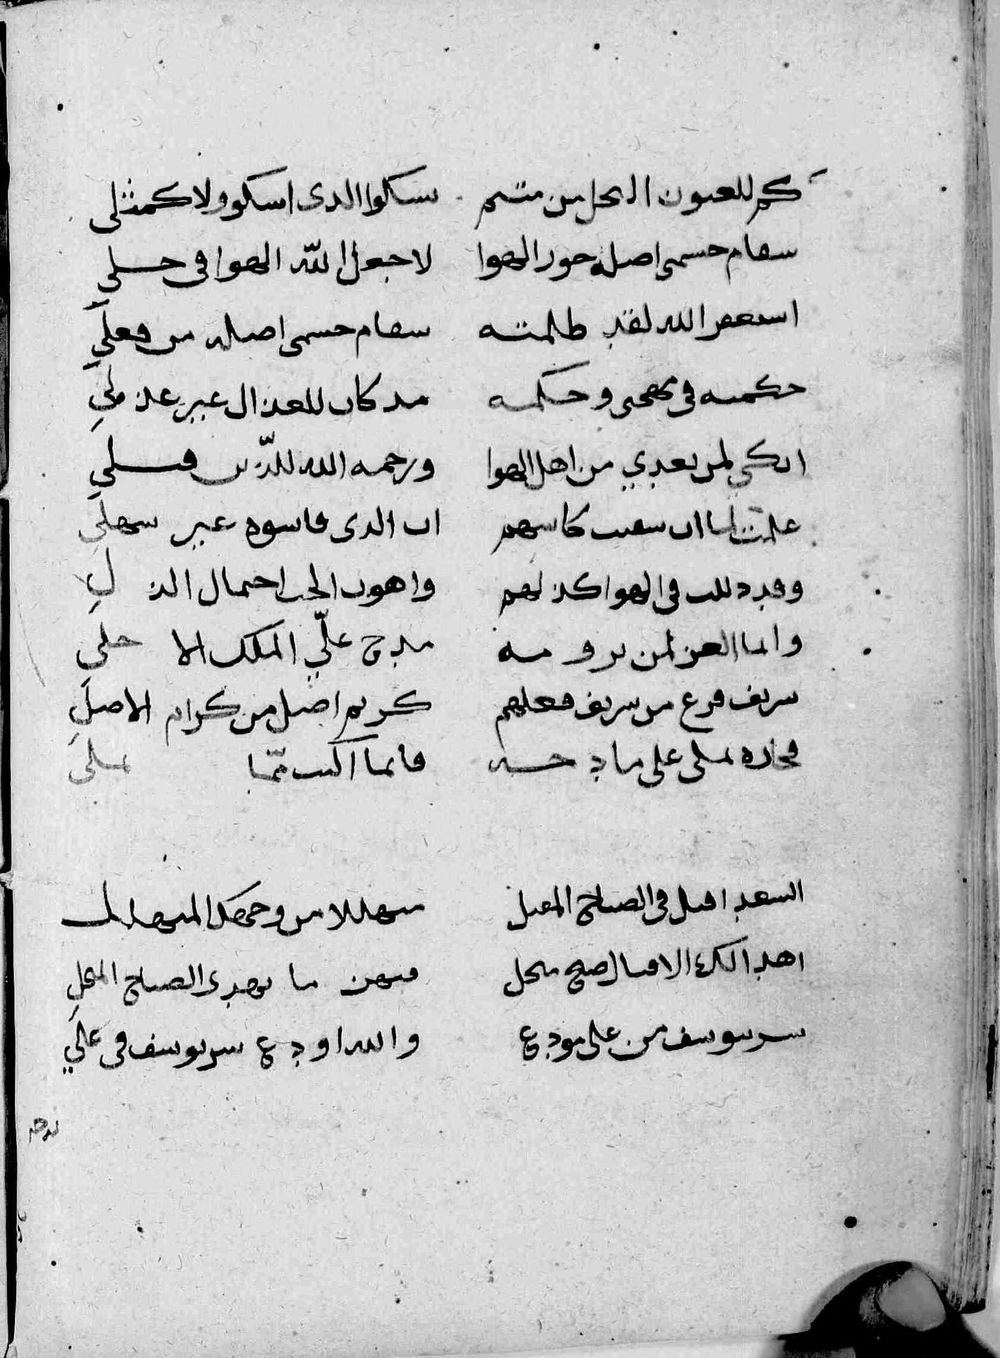 كم للعيون النجل من متيم يشكوا الذي اشكو ولا كمثلي
سقام جسمي اصله جور الهوا لا جعل الله الهوا في حلي
استغفر الله لقد ظلمته سقام جسمي اصله من فعلي
حكمته في مهجتي وحكمه مذ كان للعذال غير عذلي
ابكي لمن بعدي من اهل الهوا ورحمة الله للذين قبلي
علمت لما ان سقيت كاسهم ان الذي قاسوه غير سهل
وقد ذللت في الهوا كذلهم واهون الحب احتمال الذل
وانما العز لمن يرومه مدح علي الملك الاجل
شريف فرع من شريف فعلهم كريم اصل من كرام الاصل
فجاره يملي على مادحه فانما اكتب مما يملي
السعد اقبل في الصباح المقبل متهللا من وجهك المتهلل
اهدا لك الاقبال صبح فهن ما يهدى الصباح
سر يوسف من علي مودع والله اودع سر يوسف في علي